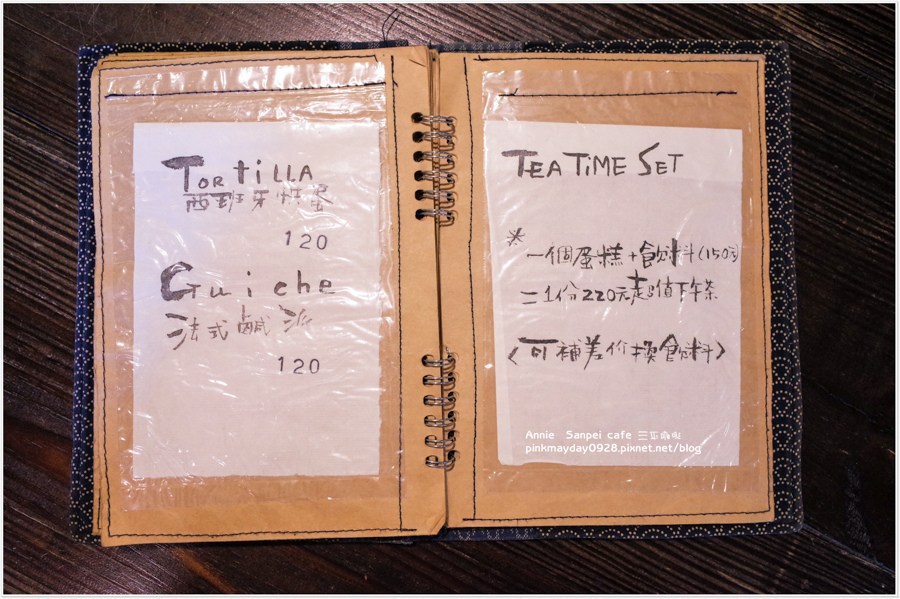 TORTiLLA
西班牙烘蛋
120
Guiche
法式鹹派
120
TEA TIME SET
※
一個蛋糕+飲料(150元)
=1份220元超值下午茶
(可補差价換飲料)
Annie Sanpei cafe 三坏咖啡
pinkmayday0928.pixnet.net/blog